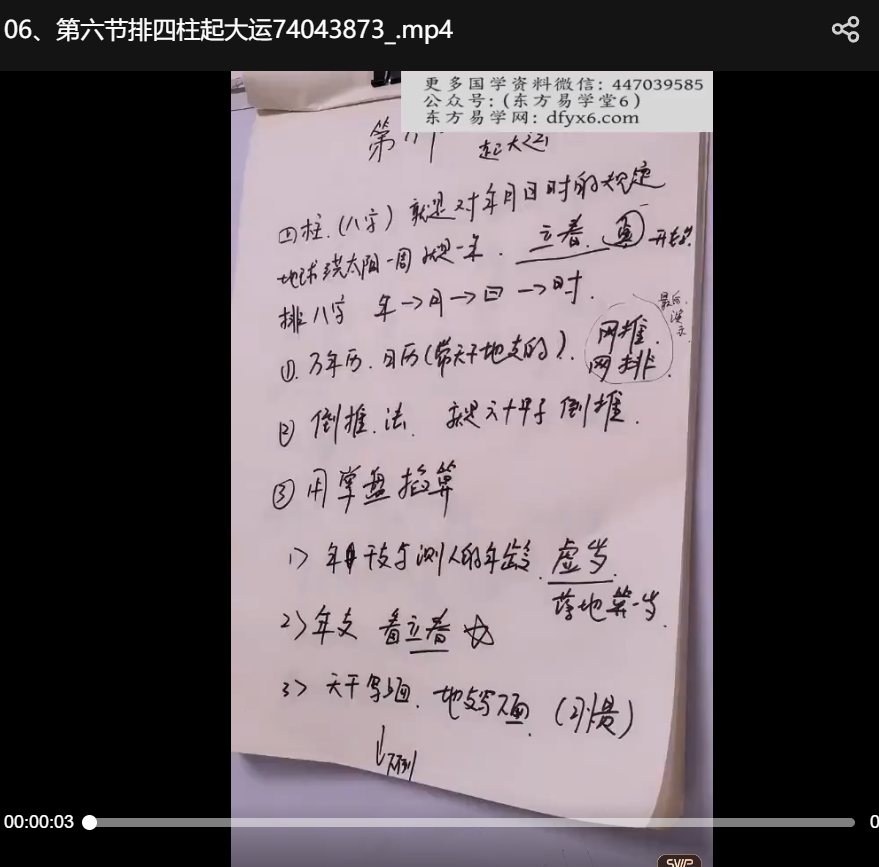 06、第六节排四柱起大运74043873_.mp4
更多国学资料微信：447039585
公众号：(东方易学堂6)
东方易学网：dfyx6.com
第六节
起大运
四柱.(八字) 就是对年月日时的规定
地球绕太阳一周就是一年. 立春. 寅 开始.
排八字 年→月→日→时.
最后
演示
网推.
网排.
①. 万年历. 日历(带天干地支的).
② 倒推.法. 就是六十甲子倒推.
③ 用掌盘掐算
1> 年干支与测人的年龄. 虚岁.
落地第一岁.
2> 年支 看立春
3> 天干写上面. 地支写下面. (习惯)
↓
SVIP
00:00:03
0